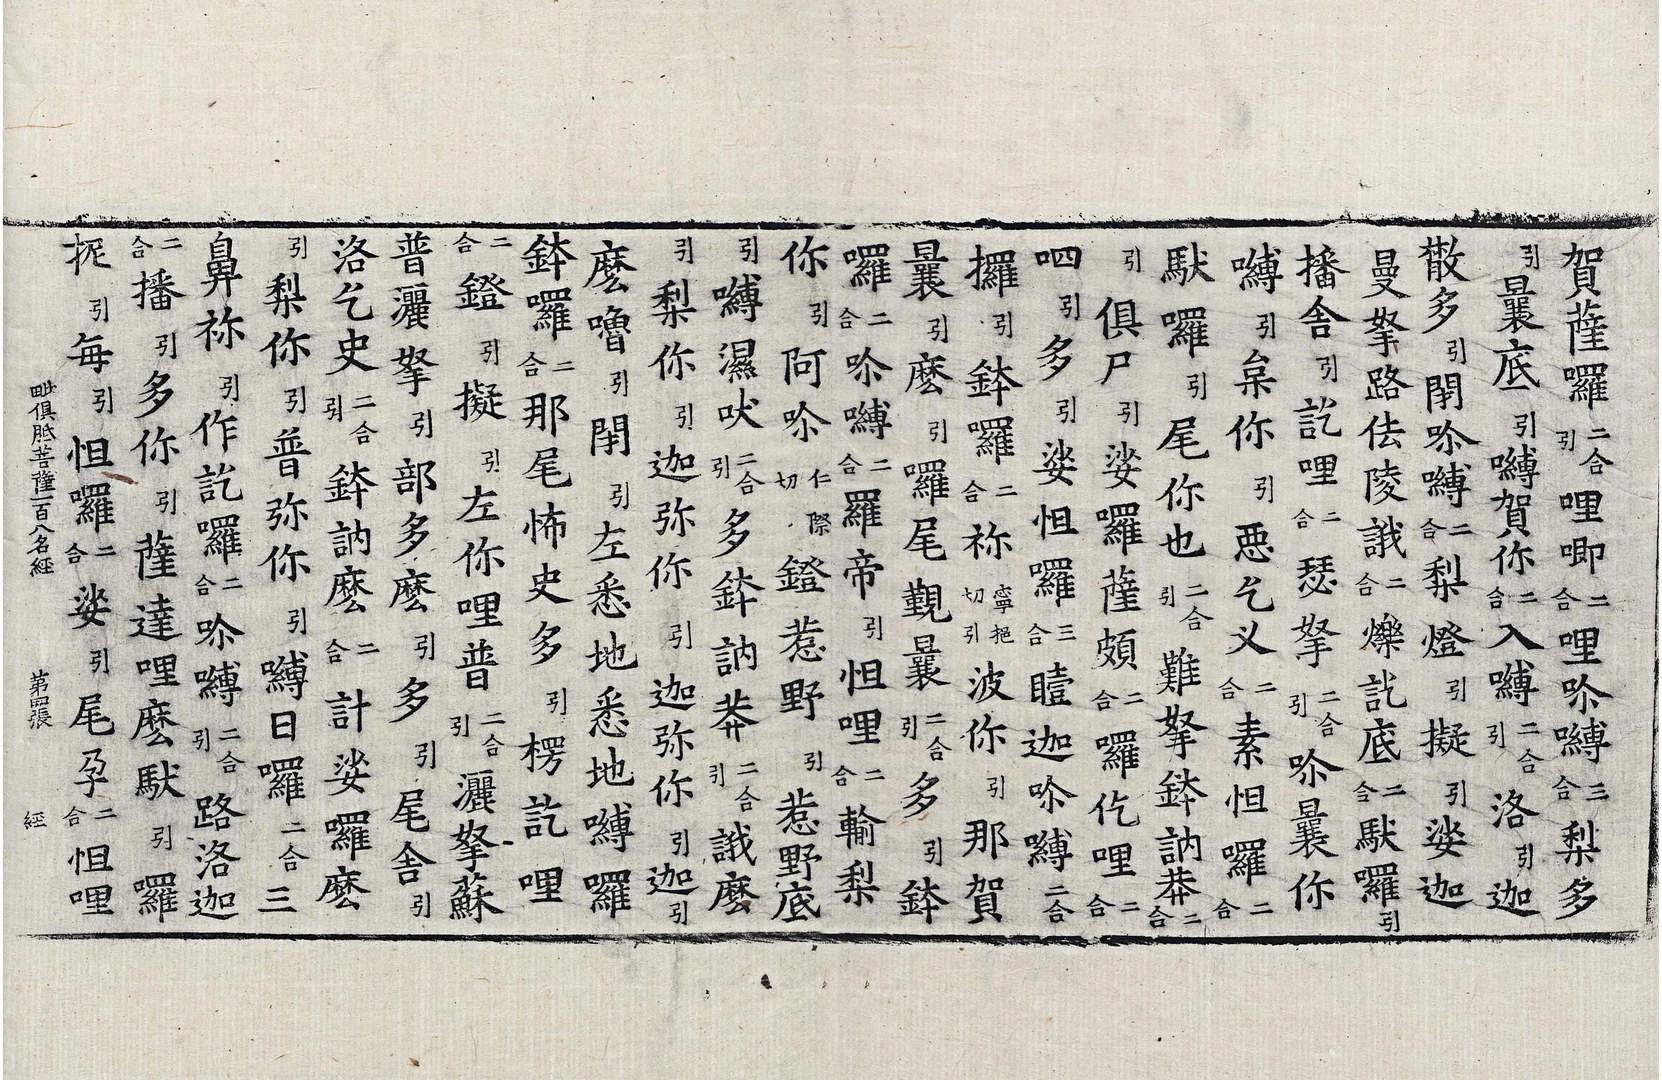 賀薩囉二合引哩唧二合哩吩嚩三合梨多
引曩底引嚩賀你二合入嚩二合引洛引迦
散多引閉吩嚩二合梨燈引擬引娑迦
曼拏路佉陵誐二合爍訖底二合馱囉引
播舍引訖哩二合瑟拏二合引吩曩你
嚩引枲你引惡乞义二合素怛囉二合
馱囉引尾你也二合引難拏鉢訥莽二合
引俱尸引娑囉薩頗二合囉仡哩二合
呬引多引娑怛囉三合瞻迦吩嚩二合
攞引鉢囉二合祢寧挹切引波你引那賀
曩引麽引囉尾覲曩二合引多引鉢
囉二合吩嚩二合羅帝引怛哩二合輸梨
你引阿吩仁際切鐙惹野引惹野底
引嚩濕吠二合引多鉢訥莽二合引誐麽
引梨你引迦弥你引迦弥你引迦引
麽嚕引閉引左悉地悉地嚩囉
鉢囉二合那尾怖史多引楞訖哩
二合鐙引擬引左你哩普二合引灑拏蘇
普灑拏引部多麽引多引尾舍引
洛乞史二合引鉢訥麽二合計娑囉麽
引梨你引普弥你引嚩日囉二合三
鼻祢引作訖囉二合吩嚩二合引路洛迦
二合播引多你引薩達哩麽馱引囉
抳引每引怛囉二合娑引尾孕二合怛哩
毗俱胝菩薩一百八名經　第四張　經